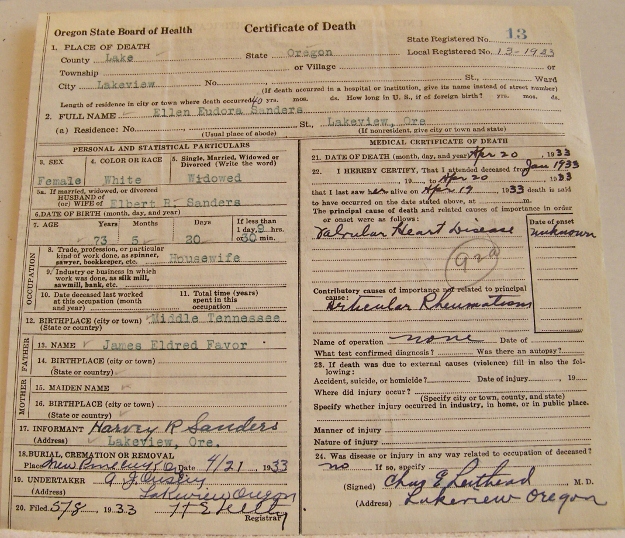 Oregon State Board of Health
Certificate of Death
State Registered No. 13
Local Registered No. 13-1933
1. PLACE OF DEATH
County Lake State Oregon
Township or Village or
City Lakeview No. St., Ward
(If death occurred in a hospital or institution, give its name instead of street number)
Length of residence in city or town where death occurred 40 yrs. mos. ds. How long in U. S., if of foreign birth? yrs. mos. ds.
2. FULL NAME Ellen Eudora Sanders
(a) Residence: No. St., Lakeview, Ore
(Usual place of abode) (If nonresident, give city or town and state)
PERSONAL AND STATISTICAL PARTICULARS
3. SEX 4. COLOR OR RACE 5. Single, Married, Widowed or Divorced (Write the word)
Female White Widowed
5a. If married, widowed, or divorced
HUSBAND of
(or) WIFE of Elbert R. Sanders
6. DATE OF BIRTH (month, day, and year)
7. AGE Years Months Days If less than 1 day, hrs. or min.
73 5 20
OCCUPATION
8. Trade, profession, or particular kind of work done, as spinner, sawyer, bookkeeper, etc. Housewife
9. Industry or business in which work was done, as silk mill, sawmill, bank, etc.
10. Date deceased last worked at this occupation (month and year)
11. Total time (years) spent in this occupation
12. BIRTHPLACE (city or town) Middle Tennessee
(State or country)
FATHER
13. NAME James Eldred Favor
14. BIRTHPLACE (city or town)
(State or country)
MOTHER
15. MAIDEN NAME
16. BIRTHPLACE (city or town)
(State or country)
17. INFORMANT Harvey R Sanders
(Address) Lakeview, Ore.
18. BURIAL, CREMATION OR REMOVAL
Place Date 4/21, 1933
19. UNDERTAKER
(Address) Lakeview Oregon
20. Filed 5/8, 1933
Registrar
MEDICAL CERTIFICATE OF DEATH
21. DATE OF DEATH (month, day, and year) Apr 20, 1933
22. I HEREBY CERTIFY, That I attended deceased from Jan 1933
, 19, to Apr 20, 1933
that I last saw her alive on Apr 19 1933 death is said
to have occurred on the date stated above, at m.
The principal cause of death and related causes of importance in order
or onset were as follows:
Date of onset
Valvular Heart Disease
unknown
92a
Contributory causes of importance not related to principal
cause:
Articular Rheumatism
Name of operation none Date of
What test confirmed diagnosis? Was there an autopsy?
23. If death was due to external causes (violence) fill in also the following:
Accident, suicide, or homicide? Date of injury, 19
Where did injury occur?
(Specify city or town, county, and state)
Specify whether injury occurred in industry, in home, or in public place.
Manner of injury
Nature of injury
24. Was disease or injury in any way related to occupation of deceased?
no If so, specify
(Signed) Chas E Leithead M. D.
(Address) Lakeview Oregon